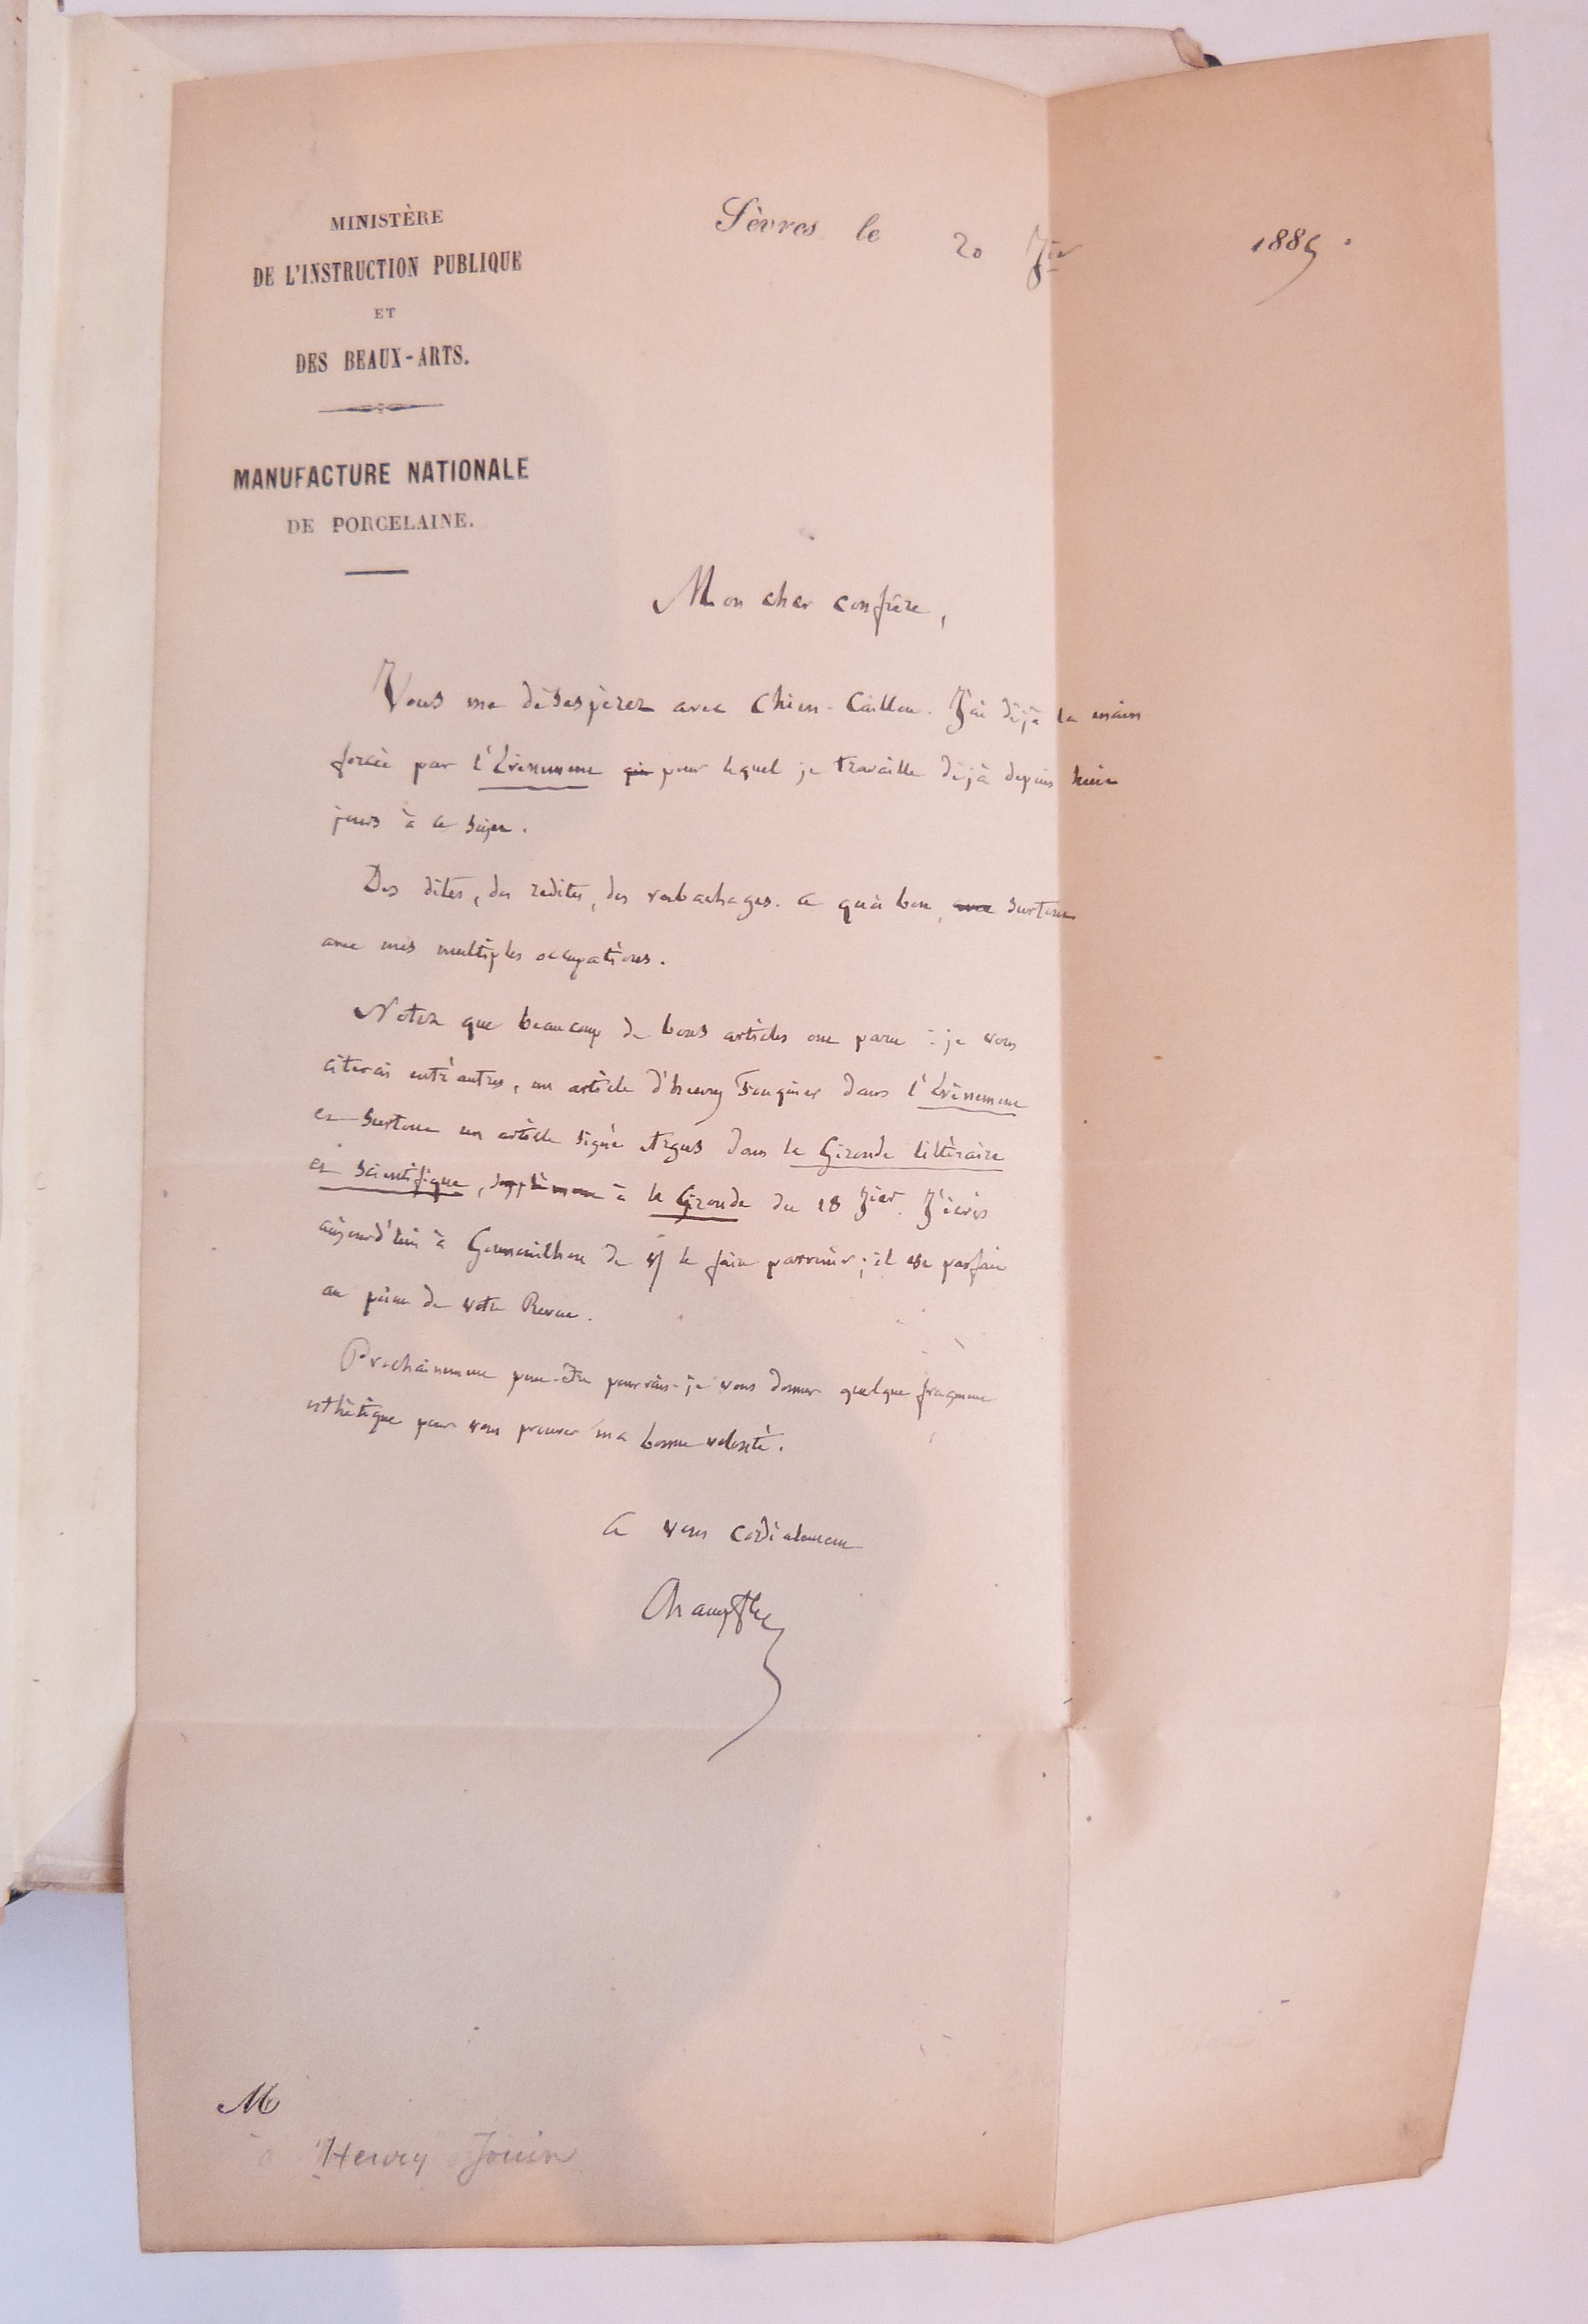 MINISTÈRE
DE L'INSTRUCTION PUBLIQUE
ET
DES BEAUX-ARTS.
MANUFACTURE NATIONALE
DE PORCELAINE.
Sèvres le 20 Jier 1885.
Mon cher confrère,
Vous me désespérez avec Chien-Caillou. J'ai déjà la main
forcée par l'Evènement qui pour lequel je travaille déjà depuis huit
jours à ce sujet.
Des dites, des redites, des rabachages. A quoi bon, avec surtout
avec mes multiples occupations.
Notez que beaucoup de bons articles ont paru : je vous
citerai entr'autres, un article d'henry Fouquier dans l'Evènement
et surtout un article signé Argus dans la Gironde littéraire
et scientifique, supplément à la Gironde du 18 Jier. J'écris
aujourd'hui à Gounouilhou de le faire parvenir ; il est parfait
au point de votre Revue.
Prochainement peut-être pourrais-je vous donner quelque fragment
esthétique pour vous prouver ma bonne volonté.
A vous cordialement
Champfleury
M
à Henry Jouin